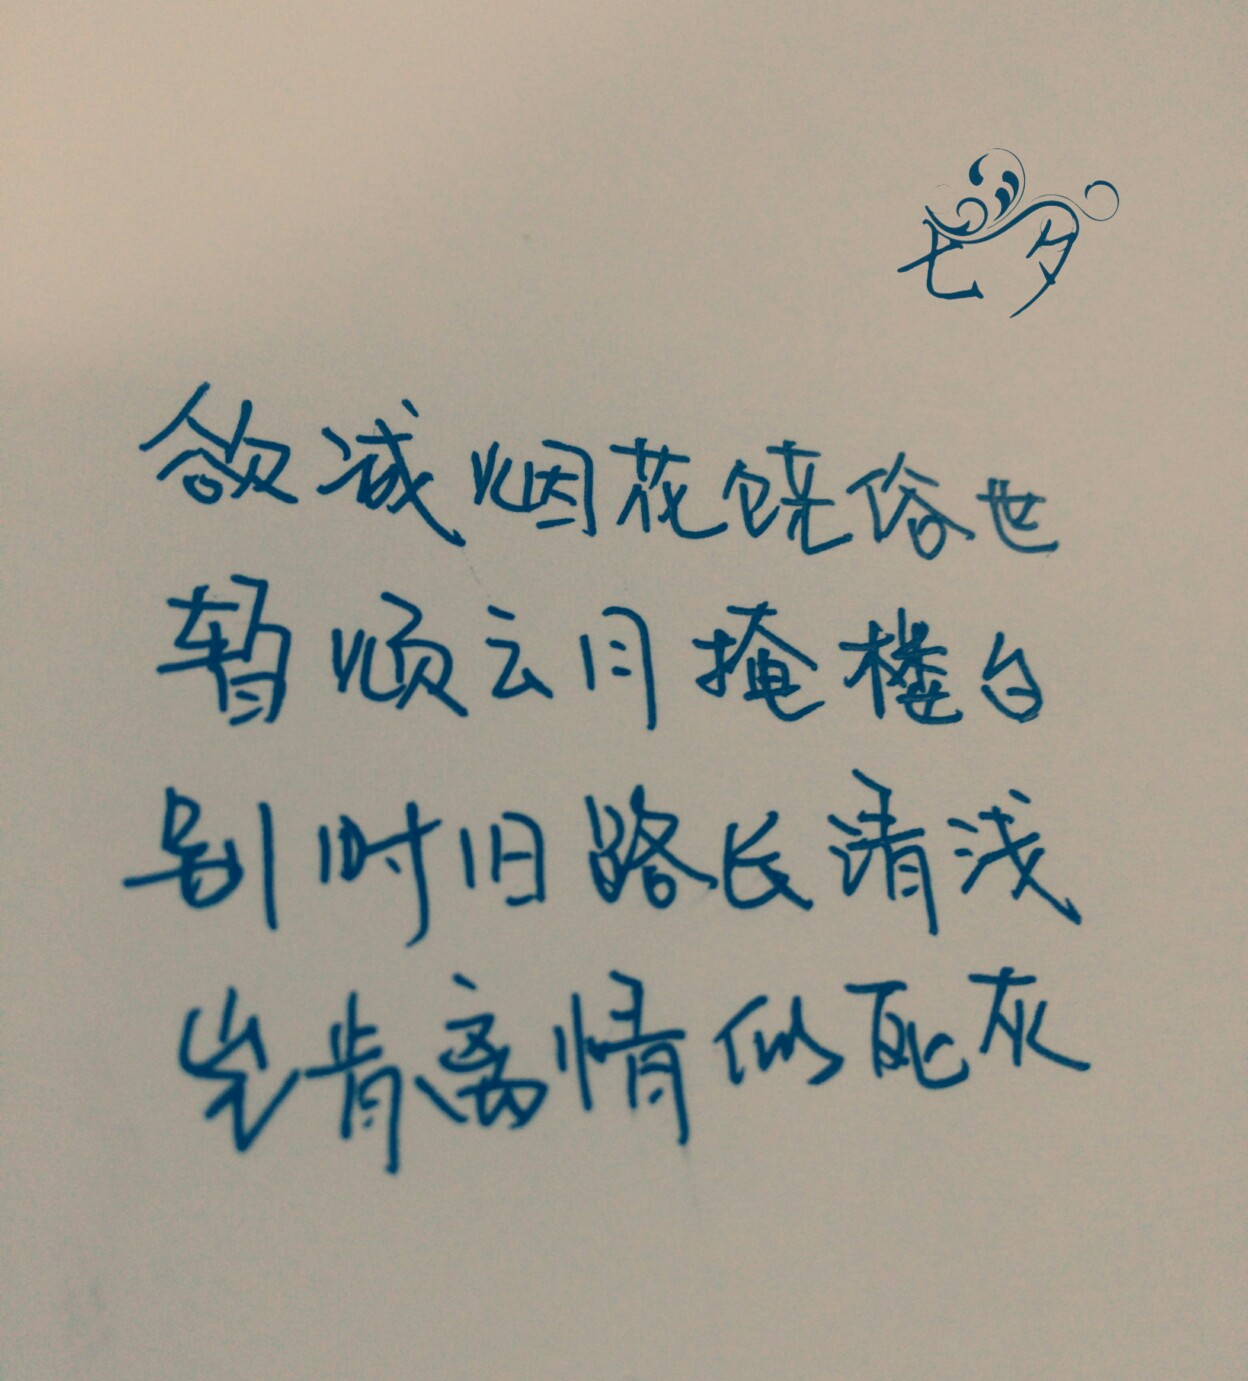 七夕
欲减烟花饶俗世
暂顺云月掩楼台
别时旧路长清浅
岂肯离情似死灰